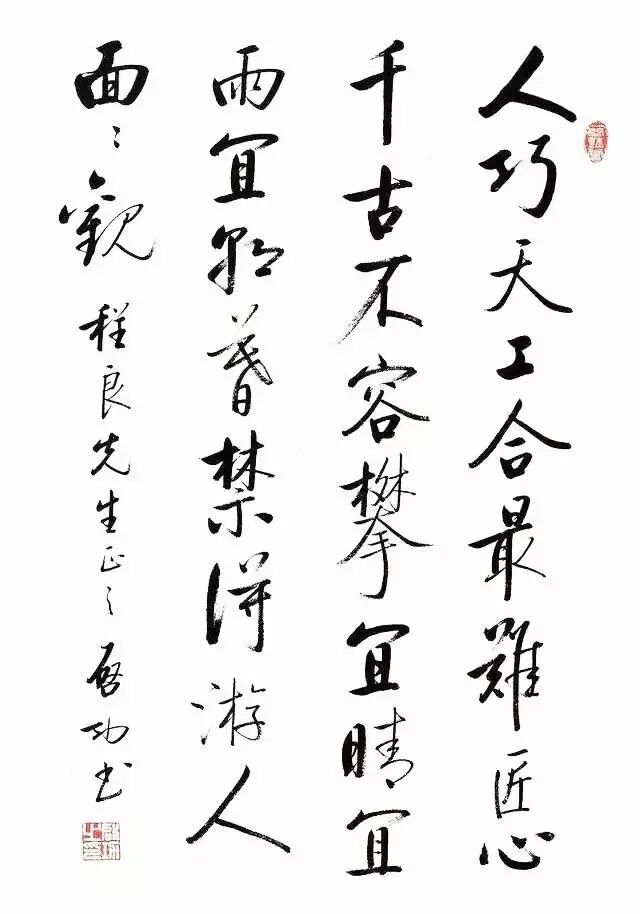 人巧天工合最難匠心
千古不容攀宜晴宜
雨宜朝暮禁得游人
面〻觀 程良先生正之 啓功書